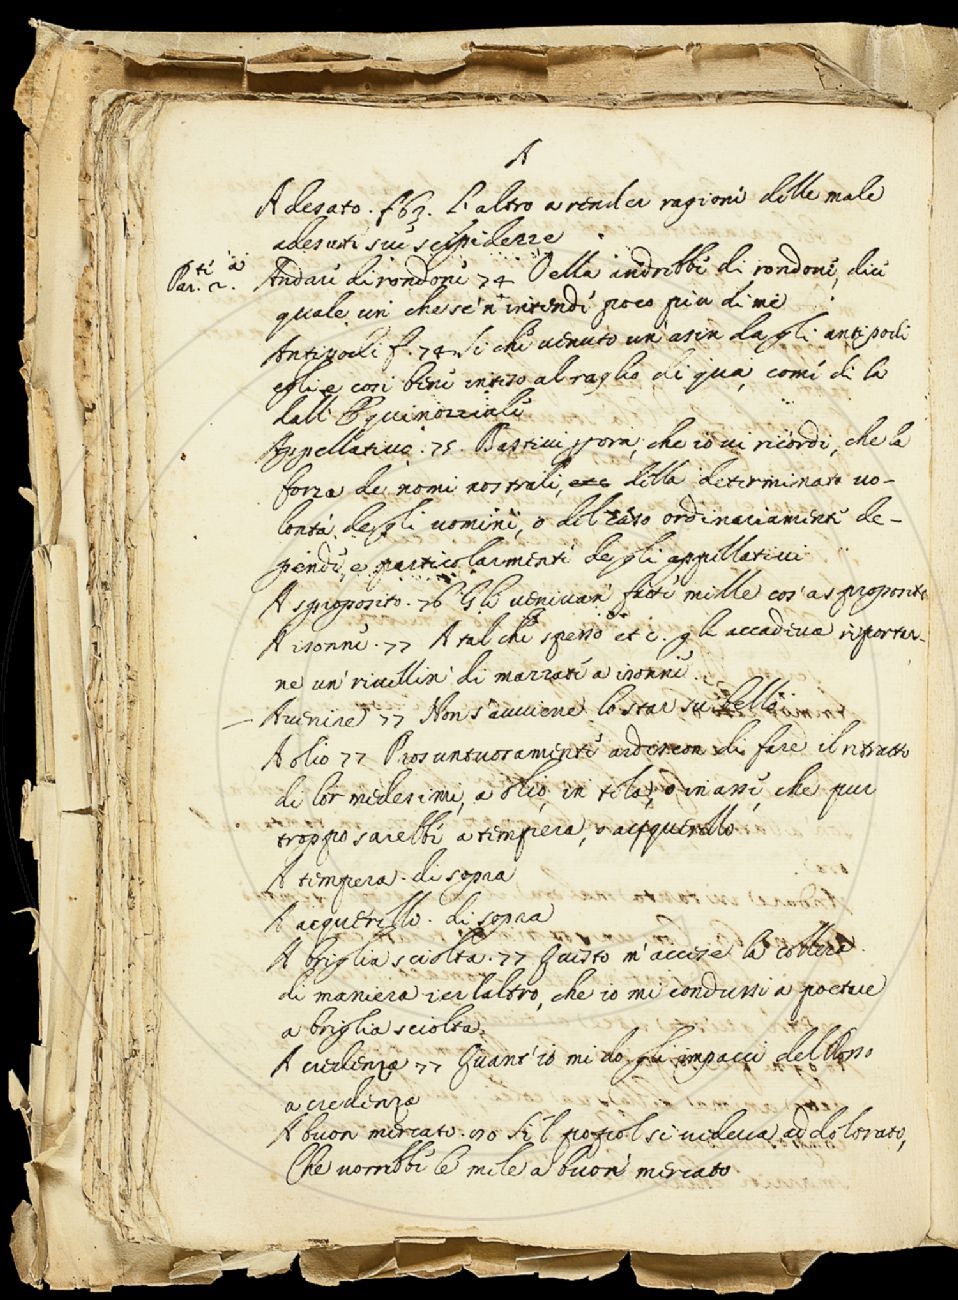 A
Adesato. f 63. L'altro a render ragioni delle male
adesati sue
Parte a 2. Andare di rondone 74 Vella andrebbe di rondone, dice
quale un che se n'intende poco piu di me
Antipodi f. 74 Si che venuto un'asin dagli antipodi
egli e cosi bene inteso al raglio di qua, come di la
dall'Equinozziale
Appellativo. 75. Bastivi ora, che io vi ricordi, che la
forza de nomi nostrali, della determinata vo-
lontà degli uomini, o del caso ordinariamente de-
pende, e particolarmente degli appellativi
A sproposito. 76 Gli venivan fatte mille cos'a sproposito
A isonne. 77 A tal che spesso etc. gli accadeva riportar-
ne un rivellin di mazzate a isonne
Avenire 77 Non s'avviene lo star su bella
A olio 77 Prosuntuosamente ardiscon di fare il ritratto
di lor medesimi, a olio, in tela, o in assi, che pur
troppo sarebbe a tempera, o acquerello
A tempera. di sopra
A acquerello. di sopra
A briglia sciolta. 77 Questo m'accese la collera
di maniera ier l'altro, che io mi condussi a poetare
a briglia sciolta.
A credenza 77 Quant'io mi do gli impacci del Rosso
a credenza
A buon mercato. Si'l popol si vedeva addolorato,
Che vorrebbe le mele a buon mercato